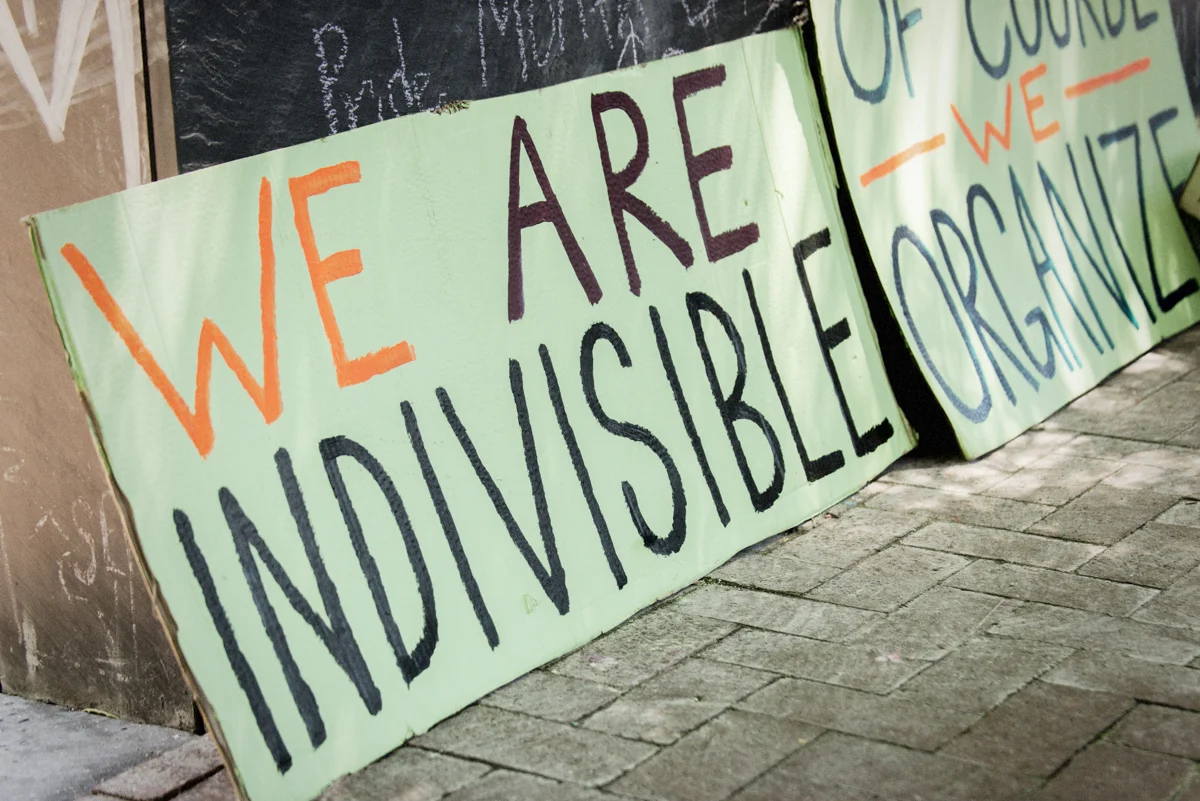 WE ARE
INDIVISIBLE
OF COURSE
— WE —
ORGANIZE